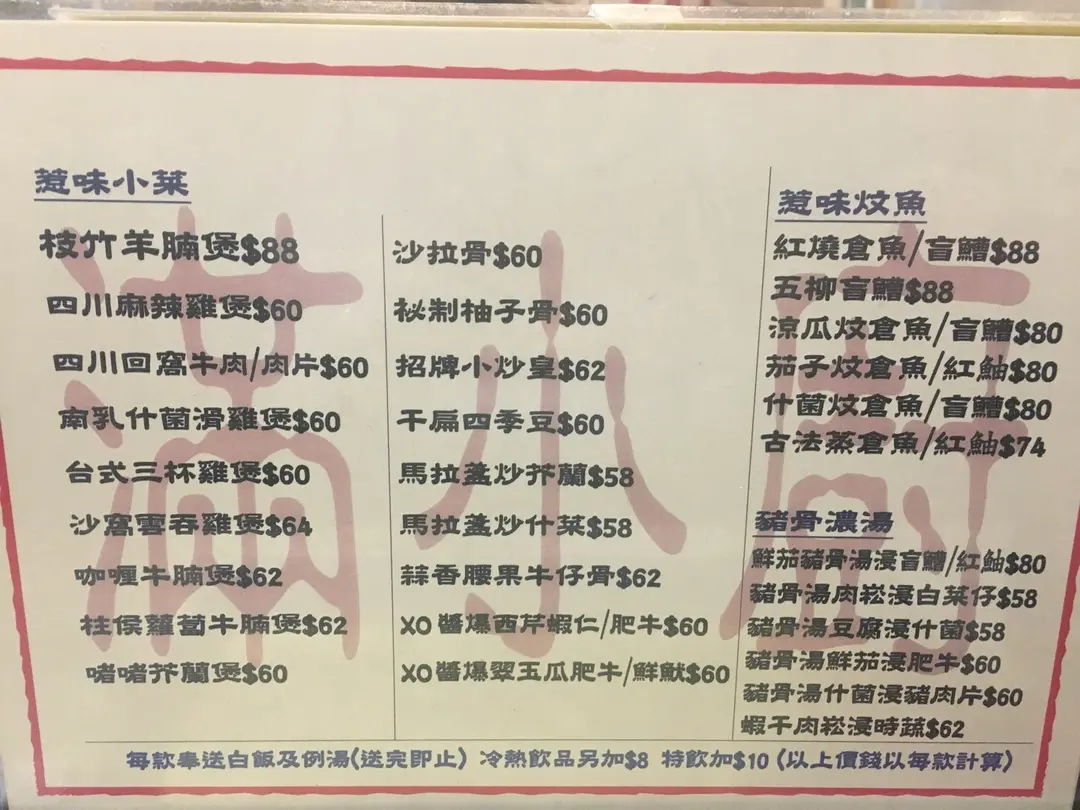 惹味小菜
枝竹羊腩煲$88
四川麻辣雞煲$60
四川回窩牛肉/肉片$60
南乳什菌滑雞煲$60
台式三杯雞煲$60
沙窩雲吞雞煲$64
咖喱牛腩煲$62
柱侯蘿蔔牛腩煲$62
啫啫芥蘭煲$60
沙拉骨$60
祕制柚子骨$60
招牌小炒皇$62
干扁四季豆$60
馬拉盞炒芥蘭$58
馬拉盞炒什菜$58
蒜香腰果牛仔骨$62
XO醬爆西芹蝦仁/肥牛$60
XO醬爆翠玉瓜肥牛/鮮魷$60
惹味炆魚
紅燒倉魚/盲鰽$88
五柳盲鰽$88
涼瓜炆倉魚/盲鰽$80
茄子炆倉魚/紅鮋$80
什菌炆倉魚/盲鰽$80
古法蒸倉魚/紅鮋$74
豬骨濃湯
鮮茄豬骨湯浸盲鰽/紅鮋$80
豬骨湯肉崧浸白菜仔$58
豬骨湯豆腐浸什菌$58
豬骨湯鮮茄浸肥牛$60
豬骨湯什菌浸豬肉片$60
蝦干肉崧浸時蔬$62
每款奉送白飯及例湯(送完即止) 冷熱飲品另加$8 特飲加$10 (以上價錢以每款計算)
滿小廚